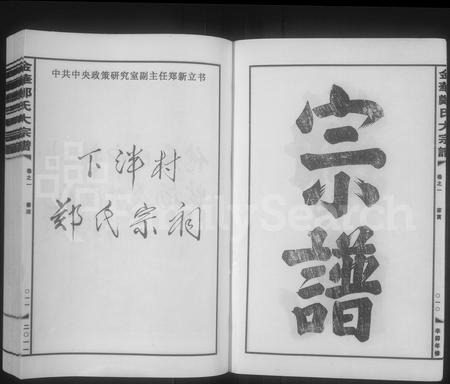 金華鄭氏大宗譜
卷之一
〇一〇
辛卯年修
宗譜
中共中央政策研究室副主任郑新立书
下泮村
郑氏宗祠
金華鄭氏大宗譜
卷之一
〇一一
二〇一一
FamilySearch